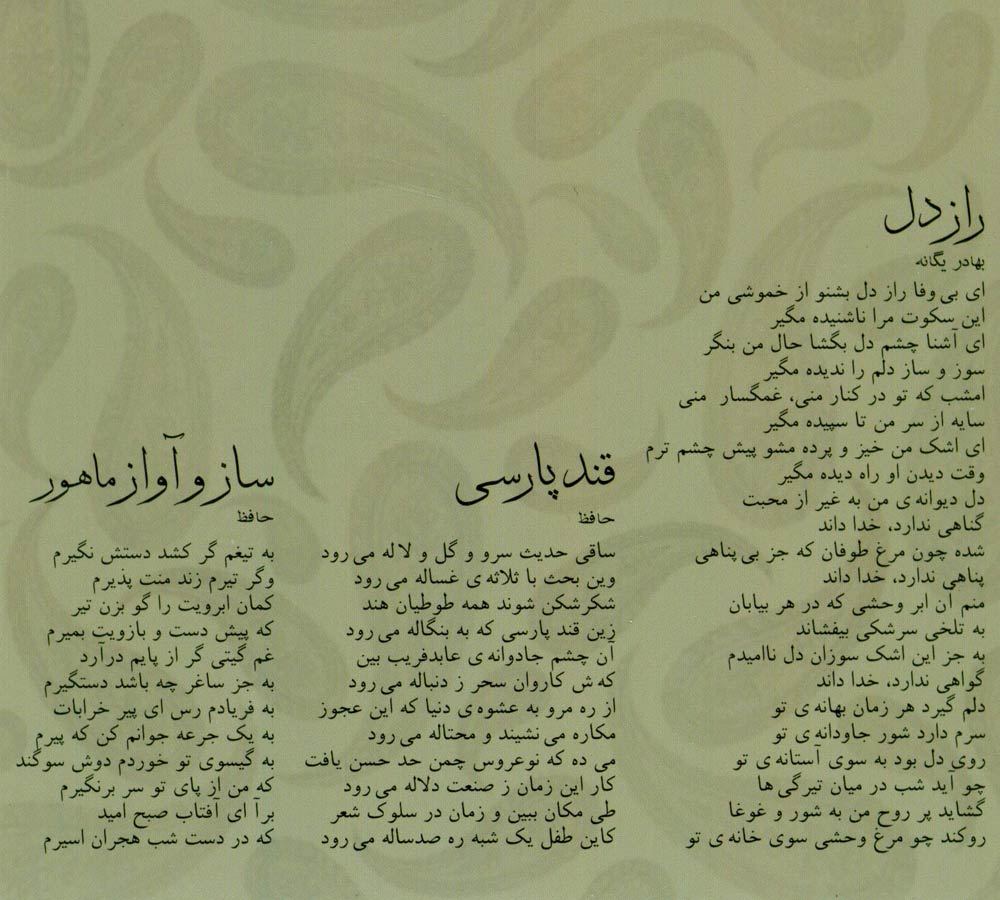 راز دل
بهادر یگانه
ای بی وفا راز دل بشنو از خموشی من
این سکوت مرا ناشنیده مگیر
ای آشنا چشم دل بگشا حال من بنگر
سوز و ساز دلم را ندیده مگیر
امشب که تو در کنار منی، غمگسار منی
سایه از سر من تا سپیده مگیر
ای اشک من خیز و پرده مشو پیش چشم ترم
وقت دیدن او راه دیده مگیر
دل دیوانه ی من به غیر از محبت
گناهی ندارد، خدا داند
شده چون مرغ طوفان که جز بی پناهی
پناهی ندارد، خدا داند
منم آن ابر وحشی که در هر بیابان
به تلخی سرشکی بیفشاند
به جز این اشک سوزان دل ناامیدم
گواهی ندارد، خدا داند
دلم گیرد هر زمان بهانه ی تو
سرم دارد شور جاودانه ی تو
روی دل بود به سوی آستانه ی تو
چو آید شب در میان تیرگی ها
گشاید پر روح من به شور و غوغا
روکند چو مرغ وحشی سوی خانه ی تو
قند پارسی
حافظ
ساقی حدیث سرو و گل و لاله می رود
وین بحث با ثلاثه ی غساله می رود
شکرشکن شوند همه طوطیان هند
زین قند پارسی که به بنگاله می رود
آن چشم جادوانه ی عابدفریب بین
که ش کاروان سحر ز دنباله می رود
از ره مرو به عشوه ی دنیا که این عجوز
مکاره می نشیند و محتاله می رود
می ده که نوعروس چمن حد حسن یافت
کار این زمان ز صنعت دلاله می رود
طی مکان ببین و زمان در سلوک شعر
کاین طفل یک شبه ره صدساله می رود
ساز و آواز ماهور
حافظ
به تیغم گر کشد دستش نگیرم
وگر تیرم زند منت پذیرم
کمان ابرویت را گو بزن تیر
که پیش دست و بازویت بمیرم
غم گیتی گر از پایم درآرد
به جز ساغر چه باشد دستگیرم
به فریادم رس ای پیر خرابات
به یک جرعه جوانم کن که پیرم
به گیسوی تو خوردم دوش سوگند
که من از پای تو سر برنگیرم
برآ ای آفتاب صبح امید
که در دست شب هجران اسیرم